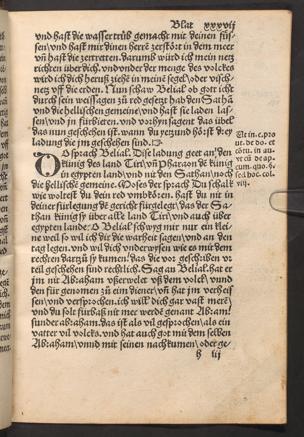 Blat xxxvij
vnd hast die wasser trüb gemacht mit deinen füs-
sen/vnd hast mir dinen herrē zerstört in dem meer
vñ hast die zertretten. darumb würd ich mein netz
richten über dich/vnd vnder der menge des volckes
wird ich dich heruß ziehē in meinē segel/oder visch-
netz vff die erden. Nun schaw Belial ob gott icht
durch sein weissagen zů red gesetzt hab den Sathā
vnd die hellischen gemeine/vnd hast sie laden las-
sen/vnd in fürbieten. vnd vorhyn sagest das übel
das nun geschehen ist. wann du yetzund hörst drey
ladung die jm geschehen sind.
DO sprach Belial. Die ladung geet an/den
künig des land Tiri/vñ Pharaon dē künig
in egypten land/vnd nit den Sathan/noch
die hellischē gemeine. Moses der sprach Du schalck
wie woltest du dein red verblümen. hast du nit in
deiner fürlegung dē gericht fürgelegt/das der Sa-
than künig sy über alle land Tiri/vnd auch über
egypten lande. Belial schwyg mir nur ein klei-
ne weil so wil ich dir die warheit sagen/vnd an den
tag legen. vnd wil dich vnderwysen wie es mit dem
rechten darzů sy kumen/das die vor geschriben vr-
teil geschehen sind rechtlich. Sag an Belial. hat er
jm nit Abraham vßerwelet vß dem volck/vnnd
den für genomen zů eim diener/vñ hat jm verheis-
sen/vnd versprochen. ich will dich gar vast merē/
vnd du solt fürbaß nit mer werdē genant Abram/
sunder abraham. das ist als vil gesprochen/als ein
vatter vil volcks. vnd hat auch got mit dem selben
Abraham/vnnd mit sinen nachkumen/oder ge-
h iij